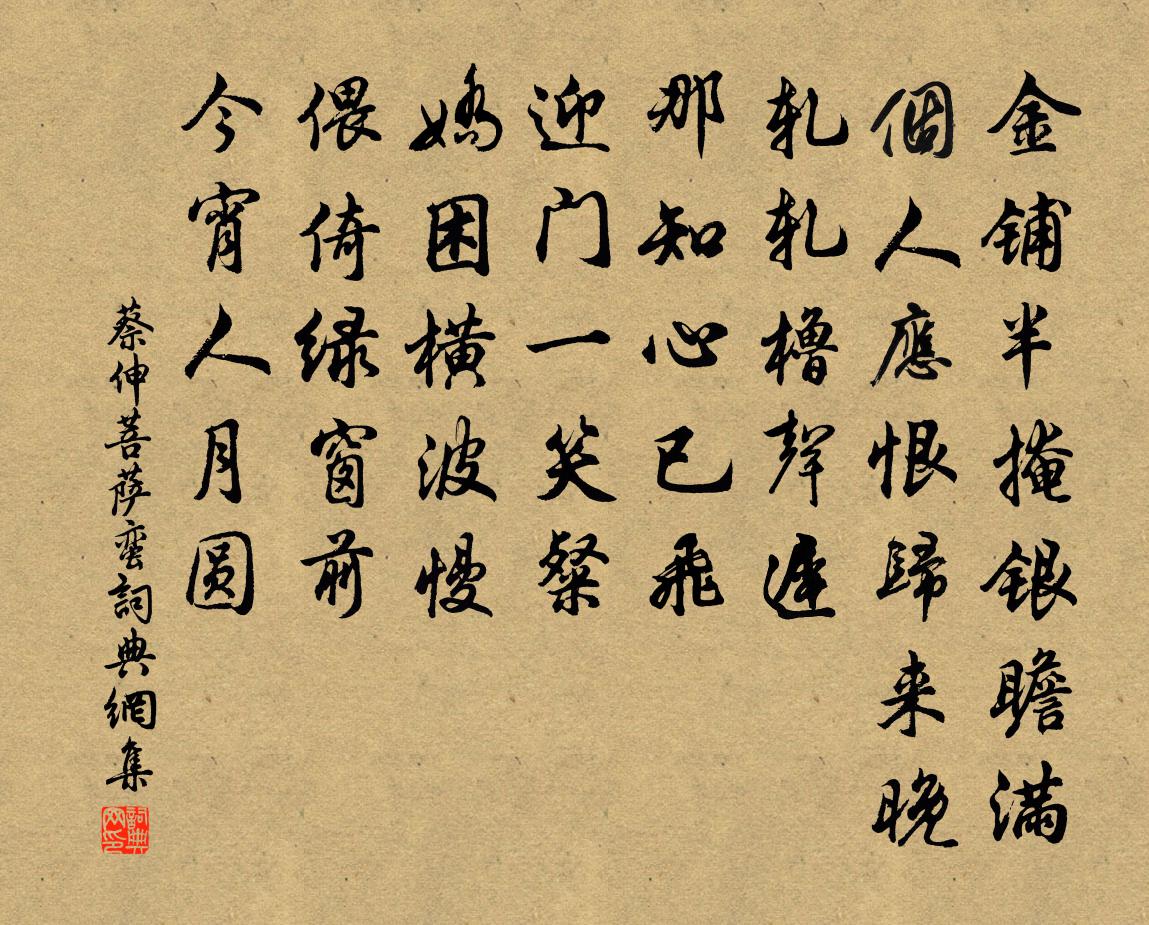 金铺半掩银瞻满
個人應恨歸来晚
轧轧櫓聲遲
那知心已飛
迎门一笑粲
嬌困横波慢
偎倚绿窗前
今宵人月圆
蔡伸菩萨蛮詞典網集
詞典网印